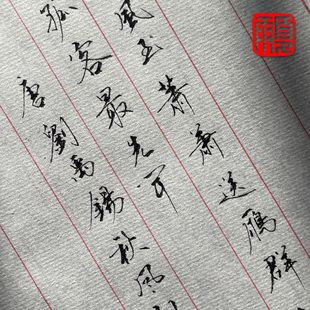 風至蕭蕭送雁群
孤客最先聞
唐劉禹錫秋風